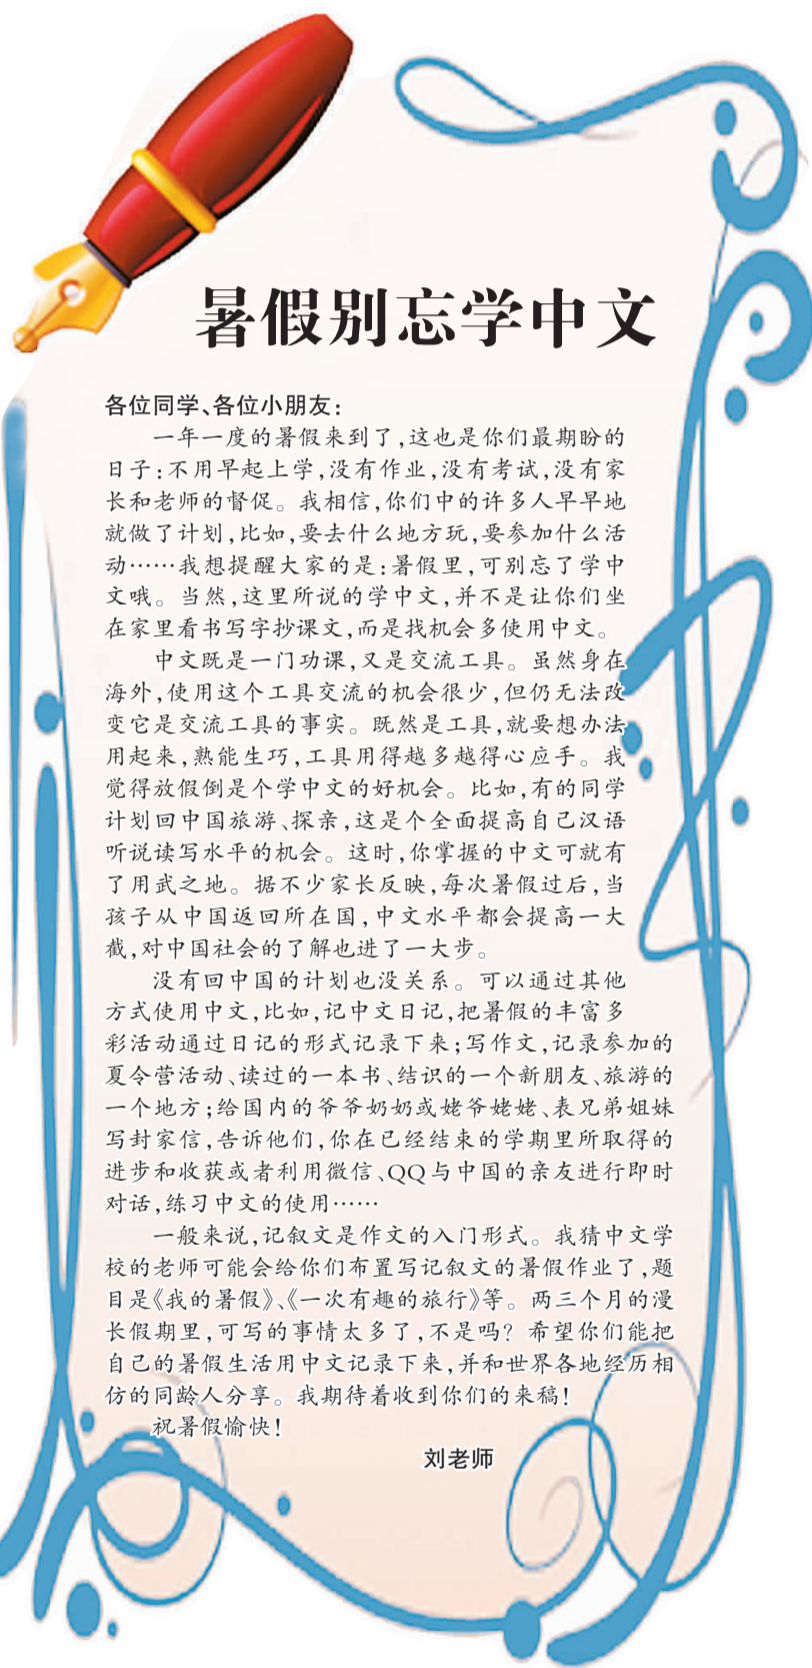 暑假别忘学中文
各位同学、各位小朋友：
一年一度的暑假来到了，这也是你们最期盼的
日子：不用早起上学，没有作业，没有考试，没有家
长和老师的督促。我相信，你们中的许多人早早地
就做了计划，比如，要去什么地方玩，要参加什么活
动……我想提醒大家的是：暑假里，可别忘了学中
文哦。当然，这里所说的学中文，并不是让你们坐
在家里看书写字抄课文，而是找机会多使用中文。
中文既是一门功课，又是交流工具。虽然身在
海外，使用这个工具交流的机会很少，但仍无法改
变它是交流工具的事实。既然是工具，就要想办法
用起来，熟能生巧，工具用得越多越得心应手。我
觉得放假倒是个学中文的好机会。比如，有的同学
计划回中国旅游、探亲，这是个全面提高自己汉语
听说读写水平的机会。这时，你掌握的中文可就有
了用武之地。据不少家长反映，每次暑假过后，当
孩子从中国返回所在国，中文水平都会提高一大
截，对中国社会的了解也进了一大步。
没有回中国的计划也没关系。可以通过其他
方式使用中文，比如，记中文日记，把暑假的丰富多
彩活动通过日记的形式记录下来；写作文，记录参加的
夏令营活动、读过的一本书、结识的一个新朋友、旅游的
一个地方；给国内的爷爷奶奶或姥爷姥姥、表兄弟姐妹
写封家信，告诉他们，你在已经结束的学期里所取得的
进步和收获或者利用微信、QQ与中国的亲友进行即时
对话，练习中文的使用……
一般来说，记叙文是作文的入门形式。我猜中文学
校的老师可能会给你们布置写记叙文的暑假作业了，题
目是《我的暑假》、《一次有趣的旅行》等。两三个月的漫
长假期里，可写的事情太多了，不是吗？希望你们能把
自己的暑假生活用中文记录下来，并和世界各地经历相
仿的同龄人分享。我期待着收到你们的来稿！
祝暑假愉快！
刘老师